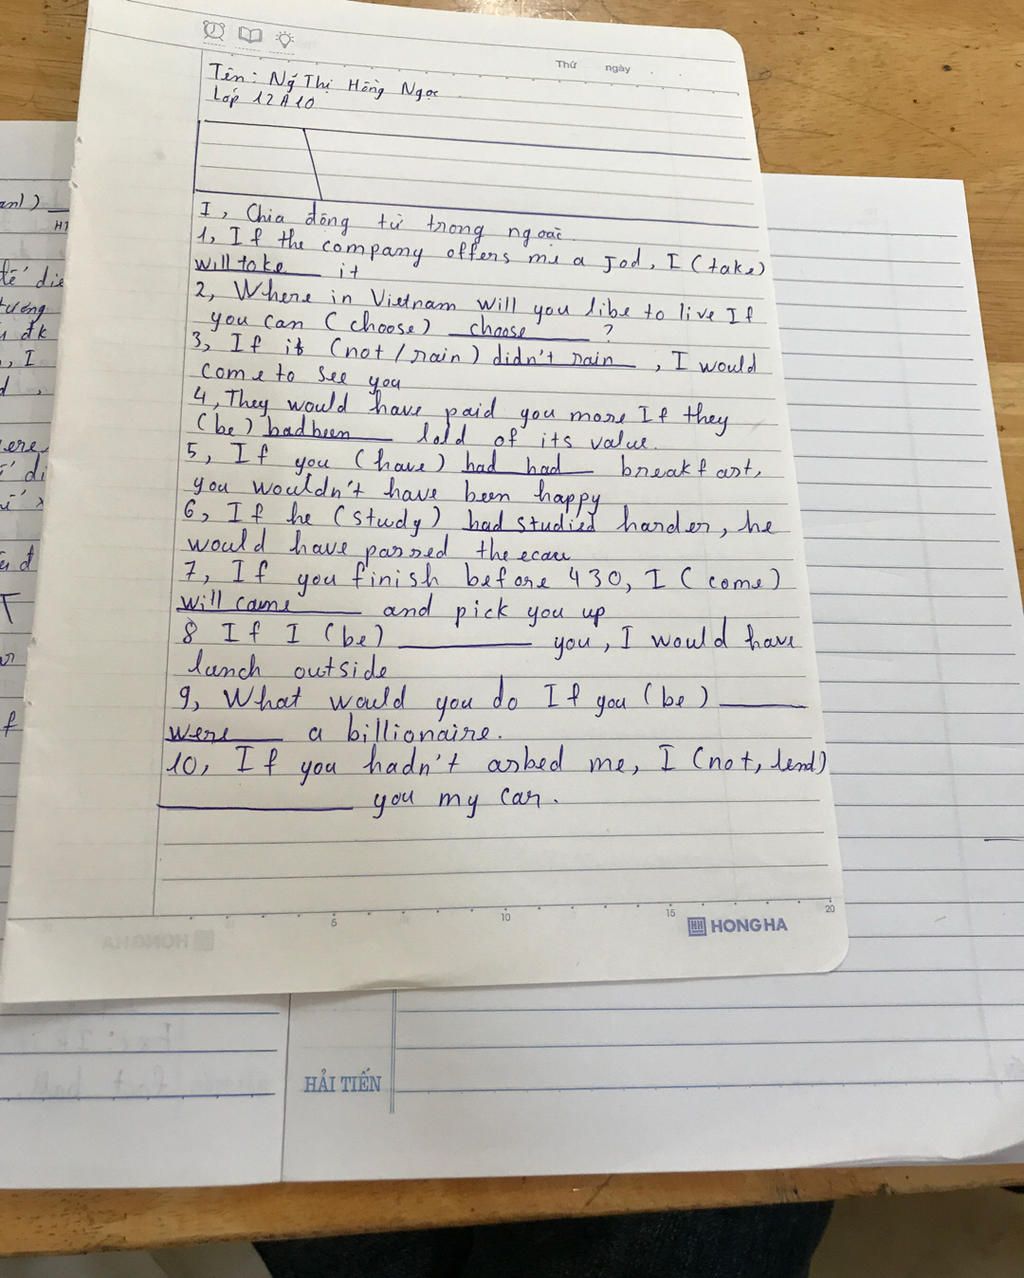 Thứ ngày
Tên: Ng Thị Hồng Ngọc
Lớp 12A10
I, Chia động từ trong ngoặc.
1, If the company offers me a Jod, I (take)
will take it
2, Where in Vietnam will you libe to live If
you can (choose) choose ?
3, If it (not/rain) didn't rain, I would
come to see you
4, They would have paid you more If they
(be) had been lold of its value.
5, If you (have) had had breakfast,
you wouldn't have been happy
6, If he (study) had studied harder, he
would have passed the
7, If you finish before 430, I (come)
will came and pick you up
8 If I (be) you, I would have
lunch outside
9, What would you do If you (be)
were a billionaire.
10, If you hadn't arbed me, I (not, lend)
you my car.
5 10 15 20
HONG HA
HẢI TIẾN